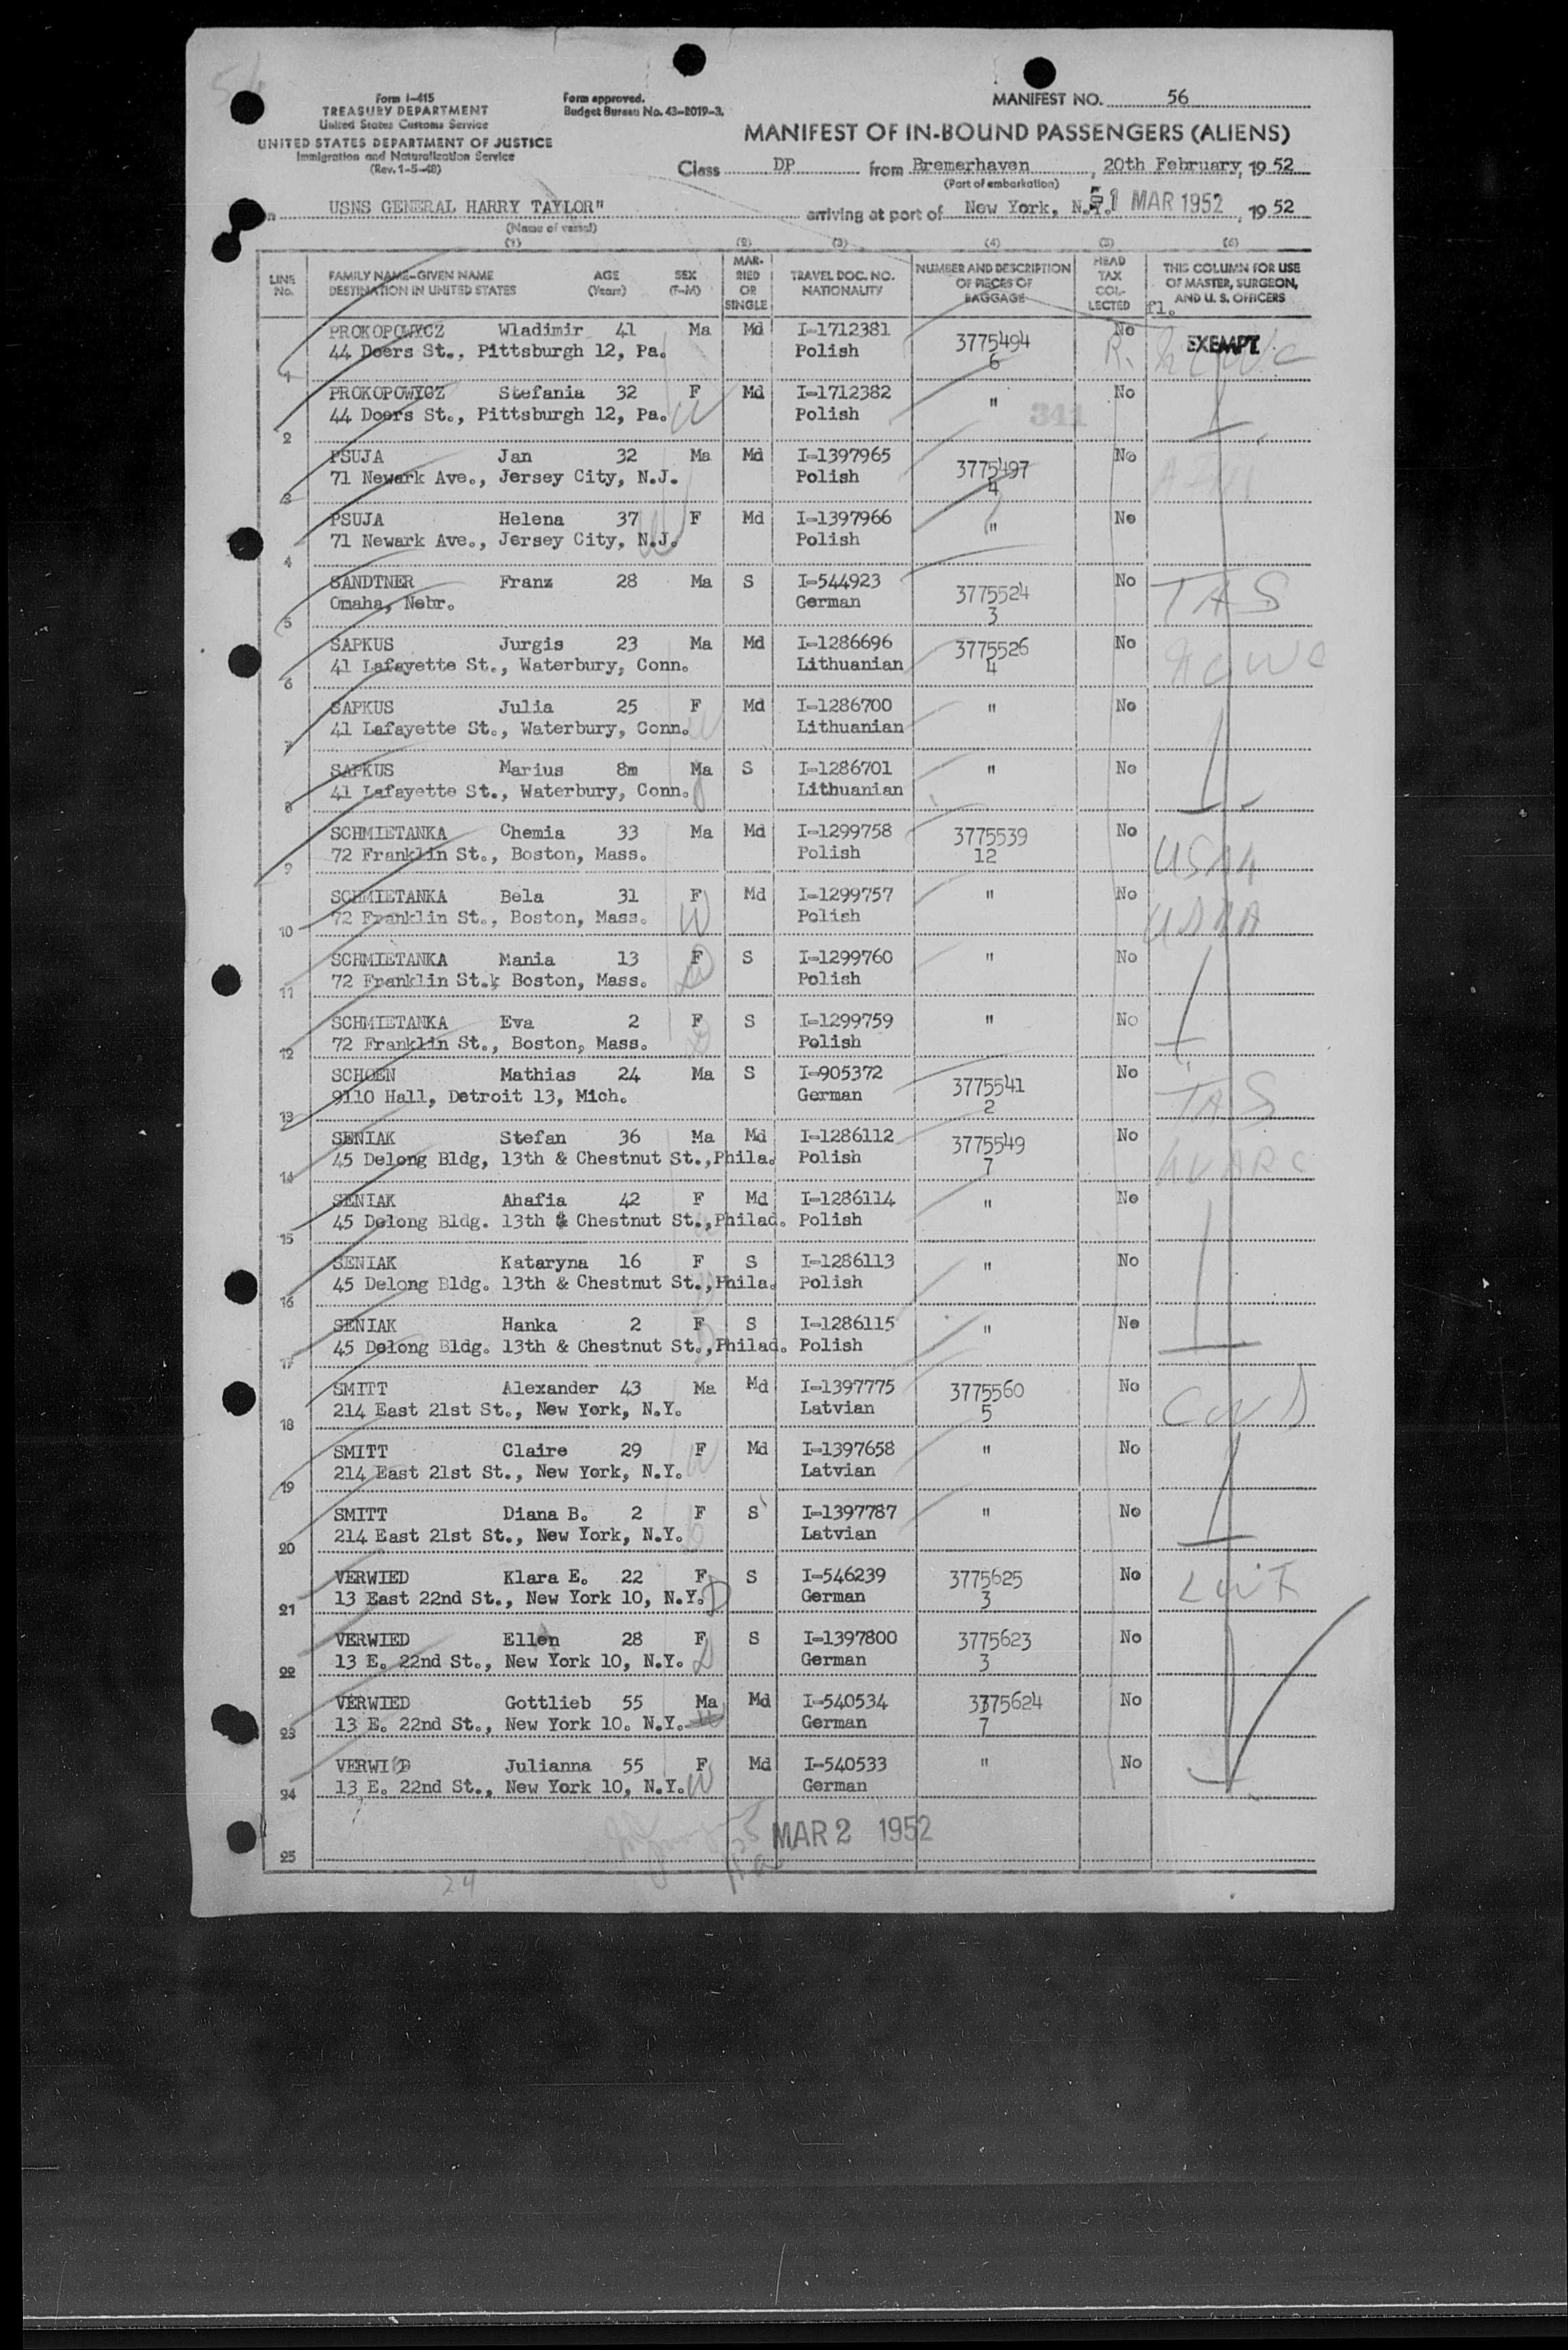 Form I-415
TREASURY DEPARTMENT
United States Customs Service
UNITED STATES DEPARTMENT OF JUSTICE
Immigration and Naturalization Service
(Rev. 1-5-48)
Form approved.
Budget Bureau No. 43-R019-3.
MANIFEST NO. 56
MANIFEST OF IN-BOUND PASSENGERS (ALIENS)
Class DP from Bremerhaven, 20th February, 19 52
(Port of embarkation)
USNS GENERAL HARRY TAYLOR" arriving at port of New York, N.Y. 1 MAR 1952, 19 52
(Name of vessel)
(1) (2) (3) (4) (5) (6)
LINE No. FAMILY NAME-GIVEN NAME DESTINATION IN UNITED STATES AGE (Years) SEX (F-M) MARRIED OR SINGLE TRAVEL DOC. NO. NATIONALITY NUMBER AND DESCRIPTION OF PIECES OF BAGGAGE HEAD TAX COLLECTED THIS COLUMN FOR USE OF MASTER, SURGEON, AND U. S. OFFICERS
fl.
PROKOPOWYCZ Wladimir 41 Ma Md I-1712381 3775494 No EXEMPT
1 44 Doers St., Pittsburgh 12, Pa. Polish 6
PROKOPOWYCZ Stefania 32 F Md I-1712382 " No
2 44 Doers St., Pittsburgh 12, Pa. W Polish 341
PSUJA Jan 32 Ma Md I-1397965 3775497 No
3 71 Newark Ave., Jersey City, N.J. Polish 4
PSUJA Helena 37 F Md I-1397966 " No
4 71 Newark Ave., Jersey City, N.J. W Polish
SANDTNER Franz 28 Ma S I-544923 3775524 No TAS
5 Omaha, Nebr. German 3
SAPKUS Jurgis 23 Ma Md I-1286696 3775526 No
6 41 Lafayette St., Waterbury, Conn. Lithuanian 4
SAPKUS Julia 25 F Md I-1286700 " No
7 41 Lafayette St., Waterbury, Conn. Lithuanian
SAPKUS Marius 8m Ma S I-1286701 " No
8 41 Lafayette St., Waterbury, Conn. Lithuanian
SCHMIETANKA Chemia 33 Ma Md I-1299758 3775539 No
9 72 Franklin St., Boston, Mass. Polish 12 USNA
SCHMIETANKA Bela 31 F Md I-1299757 " No
10 72 Franklin St., Boston, Mass. W Polish USNA
SCHMIETANKA Mania 13 F S I-1299760 " No
11 72 Franklin St.k Boston, Mass. D Polish
SCHMIETANKA Eva 2 F S I-1299759 " No
12 72 Franklin St., Boston, Mass. D Polish
SCHOEN Mathias 24 Ma S I-905372 3775541 No
13 9110 Hall, Detroit 13, Mich. German 2 TAS
SENIAK Stefan 36 Ma Md I-1286112 3775549 No
14 45 Delong Bldg, 13th & Chestnut St.,Phila. Polish 7
SENIAK Ahafia 42 F Md I-1286114 " No
15 45 Delong Bldg. 13th & Chestnut St.,Philad. Polish
SENIAK Kataryna 16 F S I-1286113 " No
16 45 Delong Bldg. 13th & Chestnut St.,Phila. Polish
SENIAK Hanka 2 F S I-1286115 " No
17 45 Delong Bldg. 13th & Chestnut St.,Philad. Polish
SMITT Alexander 43 Ma Md I-1397775 3775560 No
18 214 East 21st St., New York, N.Y. Latvian 5
SMITT Claire 29 F Md I-1397658 " No
19 214 East 21st St., New York, N.Y. W Latvian
SMITT Diana B. 2 F S I-1397787 " No
20 214 East 21st St., New York, N.Y. Latvian
VERWIED Klara E. 22 F S I-546239 3775625 No
21 13 East 22nd St., New York 10, N.Y. D German 3
VERWIED Ellen 28 F S I-1397800 3775623 No
22 13 E. 22nd St., New York 10, N.Y. D German 3
VERWIED Gottlieb 55 Ma Md I-540534 3375624 No
23 13 E. 22nd St., New York 10. N.Y. German 7
VERWIED Julianna 55 F Md I-540533 " No
24 13 E. 22nd St., New York 10, N.Y. W German
MAR 2 1952
25
24